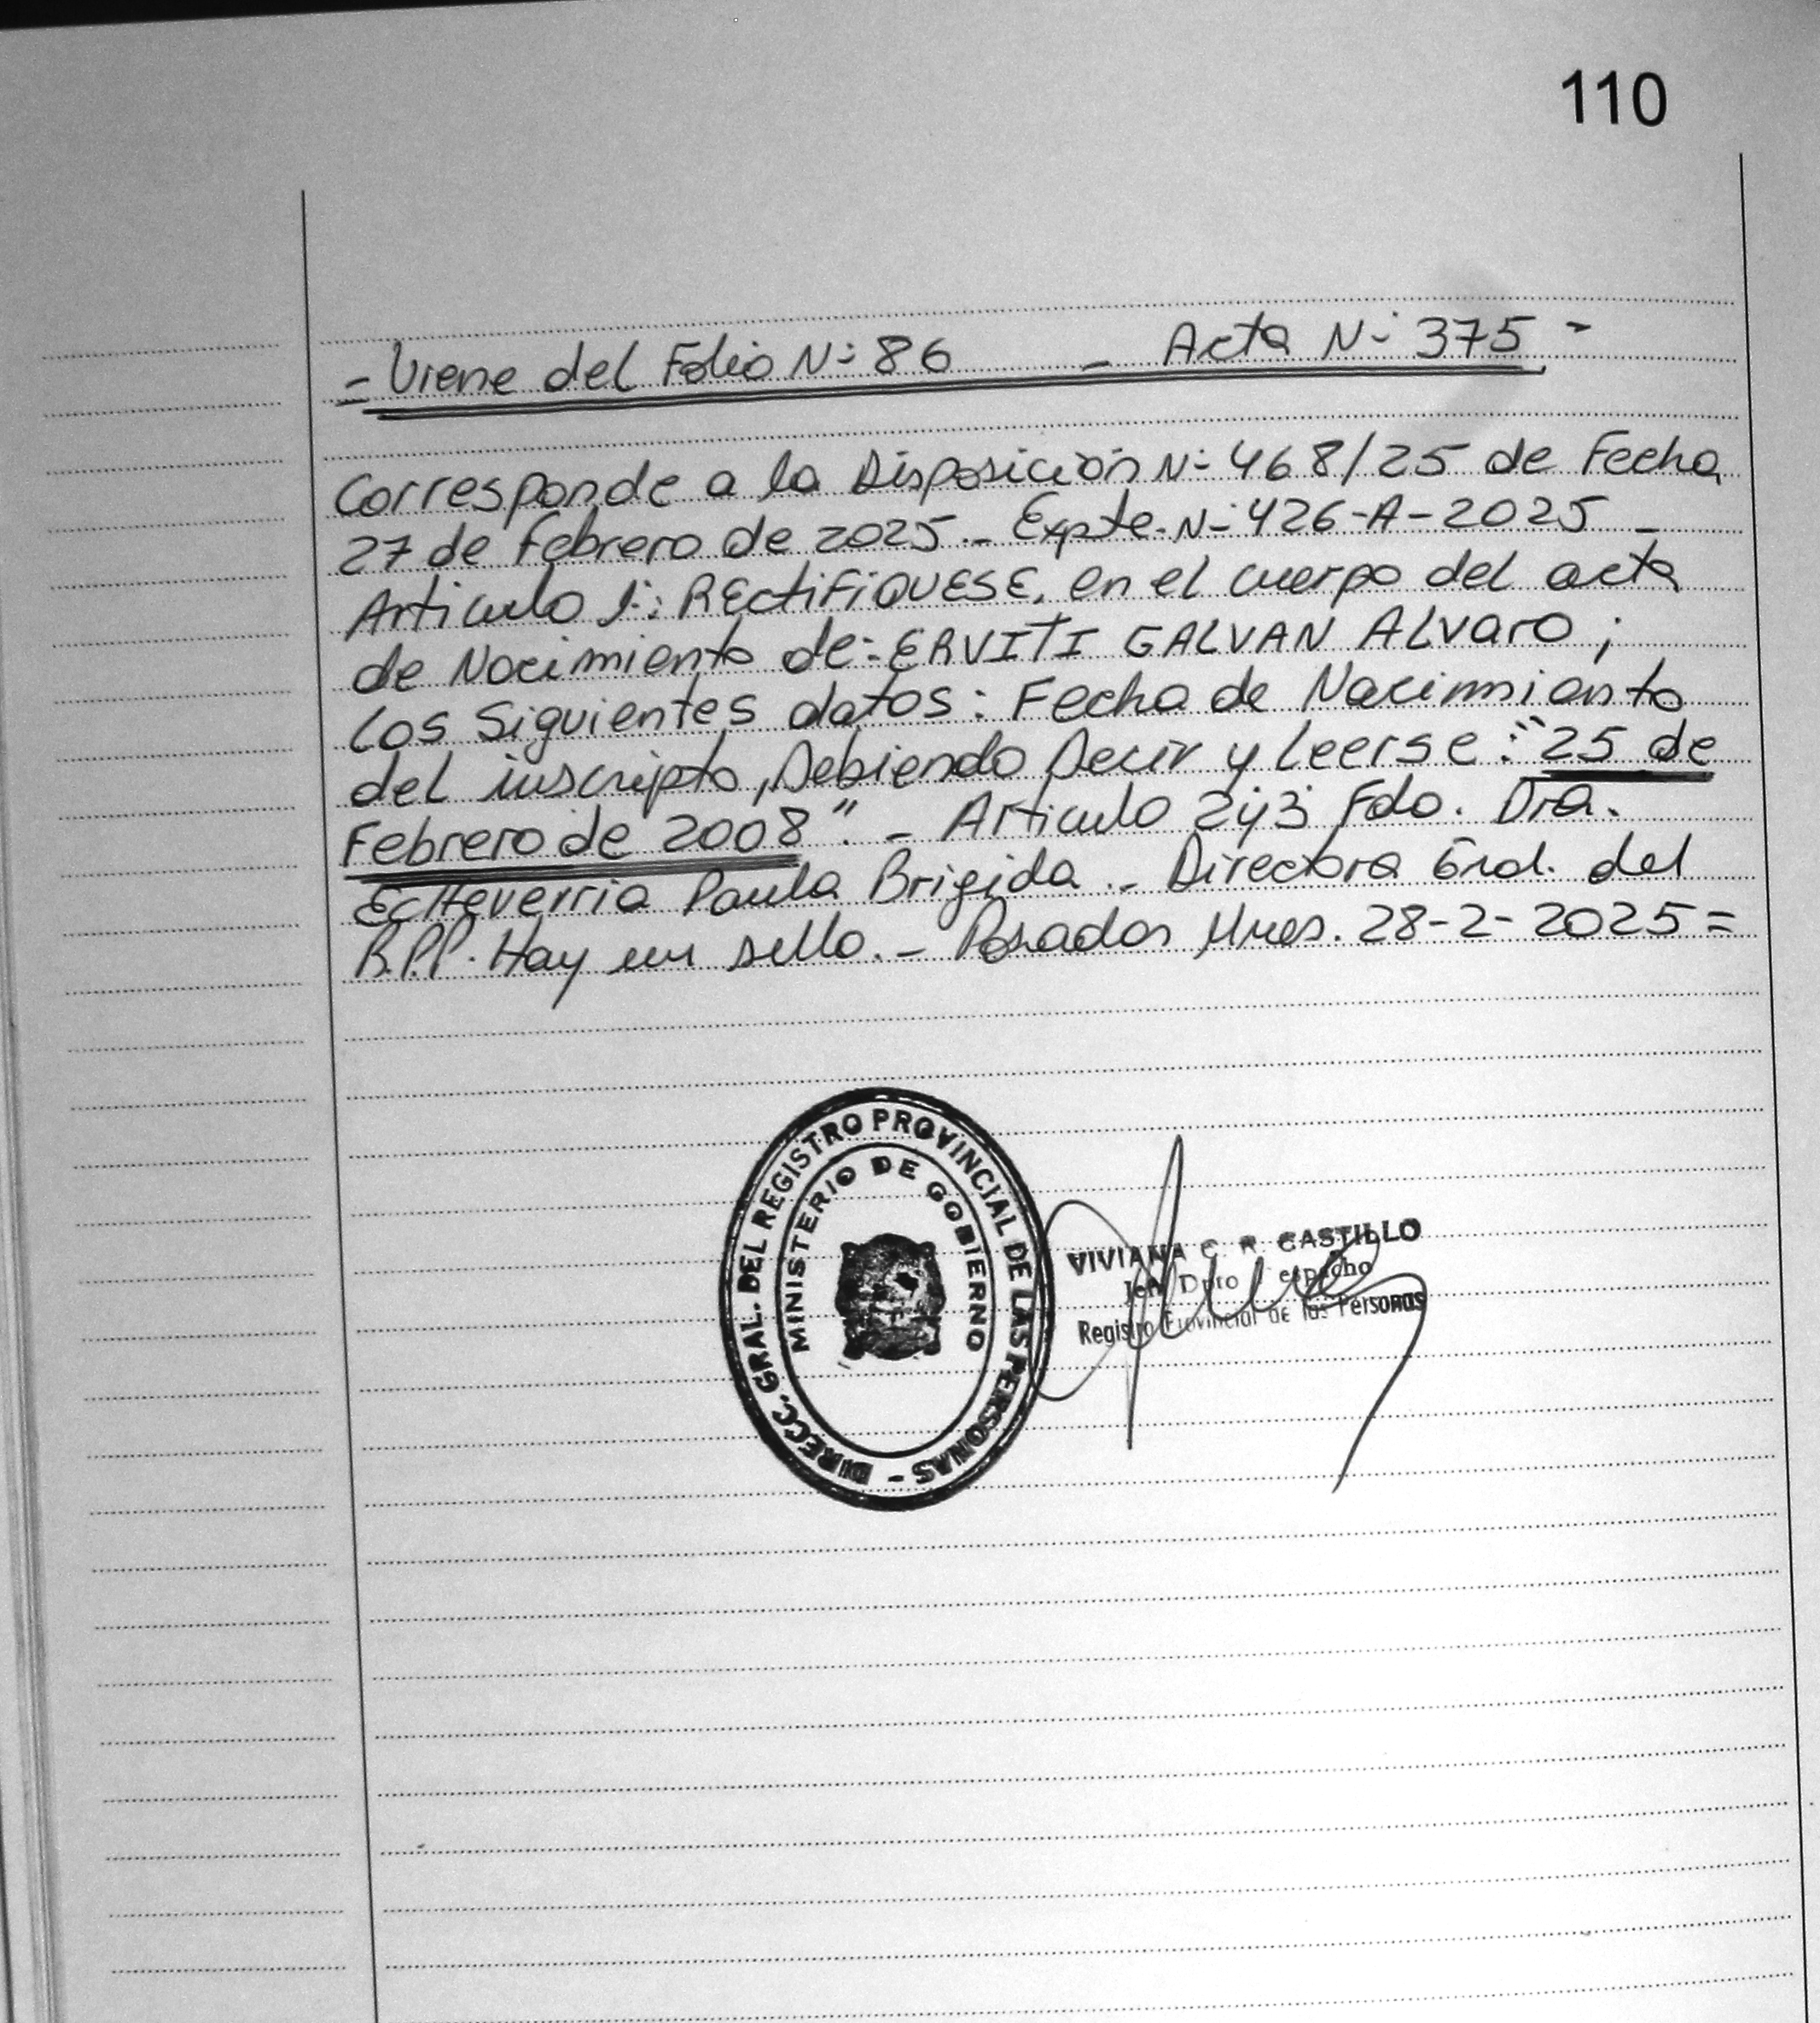 110
- Viene del Folio N- 86 - Acta N- 375 -
Corresponde a la Disposición N- 468/25 de Fecha
27 de Febrero de 2025.- Expte. N- 426-A-2025 -
Articulo 1-: RECtiFiQUESE, en el cuerpo del acta
de Nacimiento de: ERVITI GALVAN ALvaro ;
Los Siguientes datos: Fecha de Nacimiento
del inscripto, Debiendo Decir y Leerse: "25 de
Febrero de 2008". - Articulo 2 y 3 Fdo. Dra.
EcHeverria Paula Brigida.- Directora Gral. del
R.P.P. Hay un sello.- Posadas Mnes. 28-2-2025=
DIRECC. GRAL. DEL REGISTRO PROVINCIAL DE LAS PERSONAS -
MINISTERIO DE GOBIERNO
VIVIANA C. R. CASTILLO
Jefe Dpto Despacho
Registro Provincial de las Personas